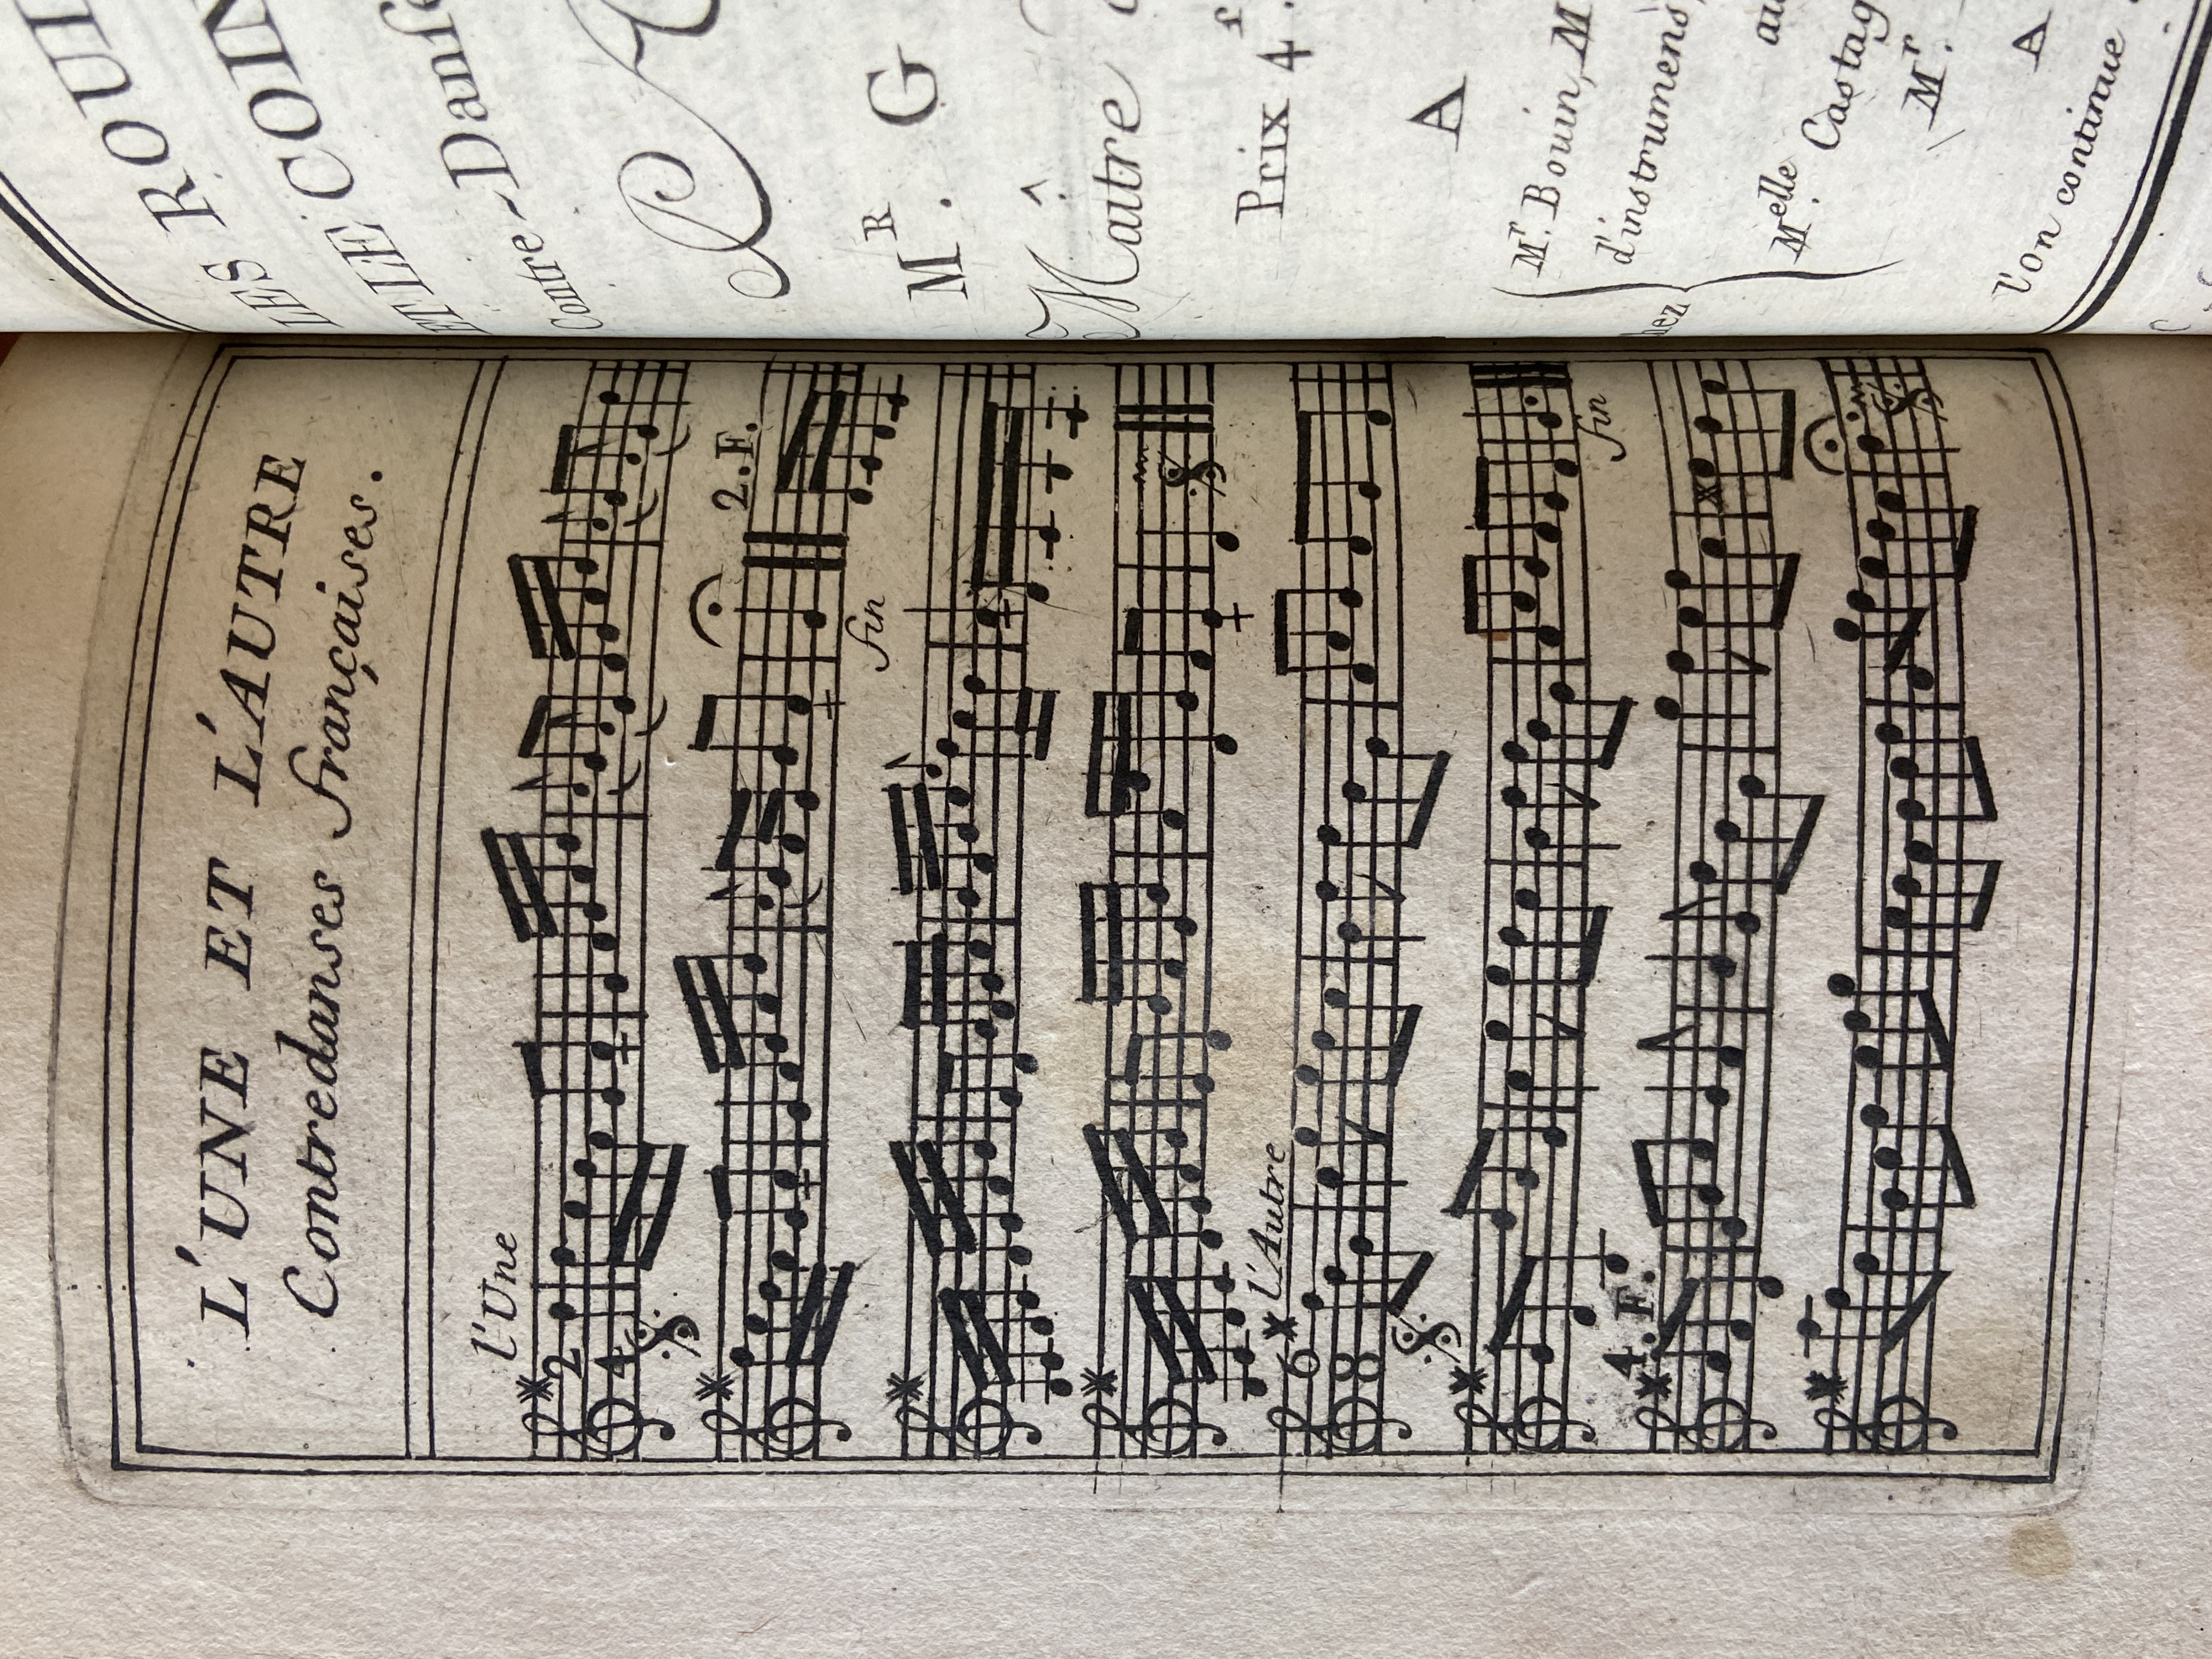 L'UNE ET L'AUTRE
Contredanses françaises.
l'Une
2
4
2.F.
fin
l'Autre
6
8
fin
4.F.
LES
ET LE
Contre-Danse
M.R G
Maître
Prix 4.f
A
Mr. Bouin, M
d'instrumens,
au
Melle Castag
Mr.
A
l'on continue